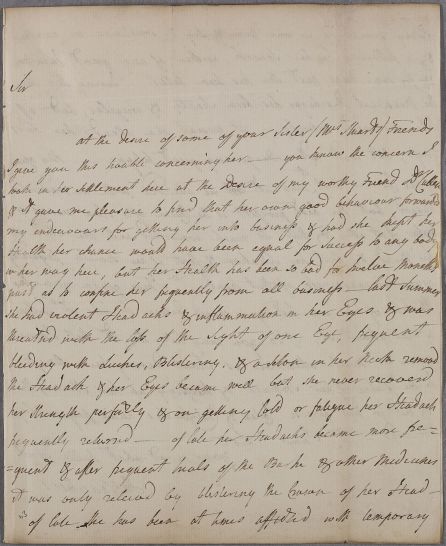 Sir
at the desire of some of your Sister (Mrs Stuarts) Friends
I give you this trouble concerning her — you know the concern I
took in her settlement here at the desire of my worthy Friend Dr Cullen
& It gave me pleasure to find that her own good behaviour forwarded
my endeavours for getting her into business & had she kept her
Health her chance would have been equal for success to any body
in her way here, but her Health has been so bad for twelve Months
past as to confine her frequently from all business — last Summer
She had violent Headachs & inflammation in her Eyes & was
threatned with the loss of the sight of one Eye, frequent
bleeding with leeches, Blistering, & a seton in her Neck removed
the Headach & her Eyes became well but she never recovered
her strength perfectly & on getting Cold or fatigue her Headachs
frequently returned — of late her Headachs became more fre=
=quent & after frequent trials of the Barke & other Medicines
it was only releived by blistering the Crown of her Head —
of late She has been at times afflicted with temporary